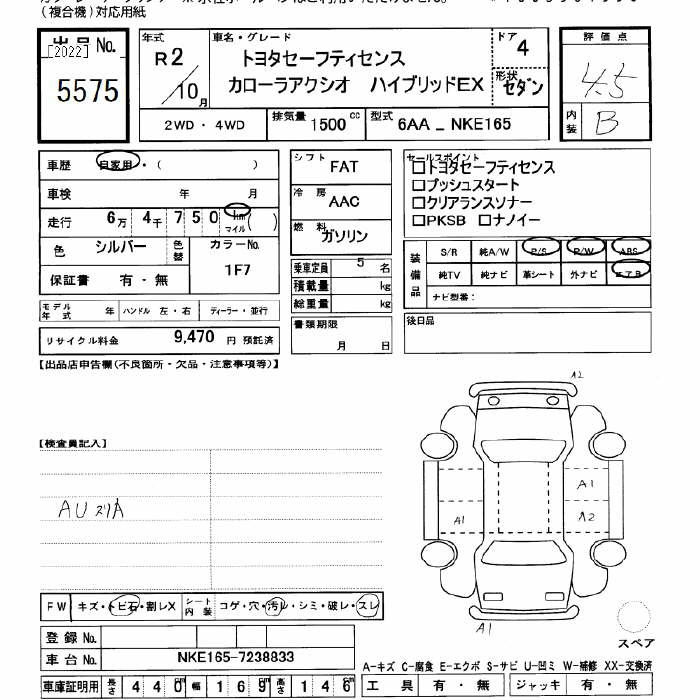 (複合機)対応用紙
出品 No.
[2022]
5575
年式
R 2 / 10 月
車名・グレード
トヨタセーフティセンス
カローラアクシオ ハイブリッドEX
ドア 4
形状 セダン
評価点
4.5
内装 B
2WD ・ 4WD
排気量 1500 cc
型式 6AA _ NKE165
車歴 自家用・( )
車検 年 月
走行 6万 4千 7 5 0 km マイル ( )
色 シルバー 色替 カラーNo. 1F7
保証書 有 ・ 無
モデル年式 年 ハンドル 左・右 ディーラー・並行
リサイクル料金 9,470 円 預託済
シフト FAT
冷房 AAC
燃料 ガソリン
乗車定員 5 名
積載量 kg
総重量 kg
書類期限
月 日
セールスポイント
□トヨタセーフティセンス
□プッシュスタート
□クリアランスソナー
□PKSB □ナノイー
装備品
S/R 純A/W P/S P/W ABS
純TV 純ナビ 革シート 外ナビ エアB
ナビ型番:
後日品
【出品店申告欄(不良箇所・欠品・注意事項等)】
【検査員記入】
A2
A1
A1 A2
A1
スペア
FW キズ・トビ石・割レX シート内装 コゲ・穴・汚レ・シミ・破レ・スレ
登録 No.
車台 No. NKE165-7238833
車庫証明用 長さ 440 幅 169 高さ 146
A-キズ C-腐食 E-エクボ S-サビ U-凹ミ W-補修 XX-交換済
工具 有 ・ 無 ジャッキ 有 ・ 無